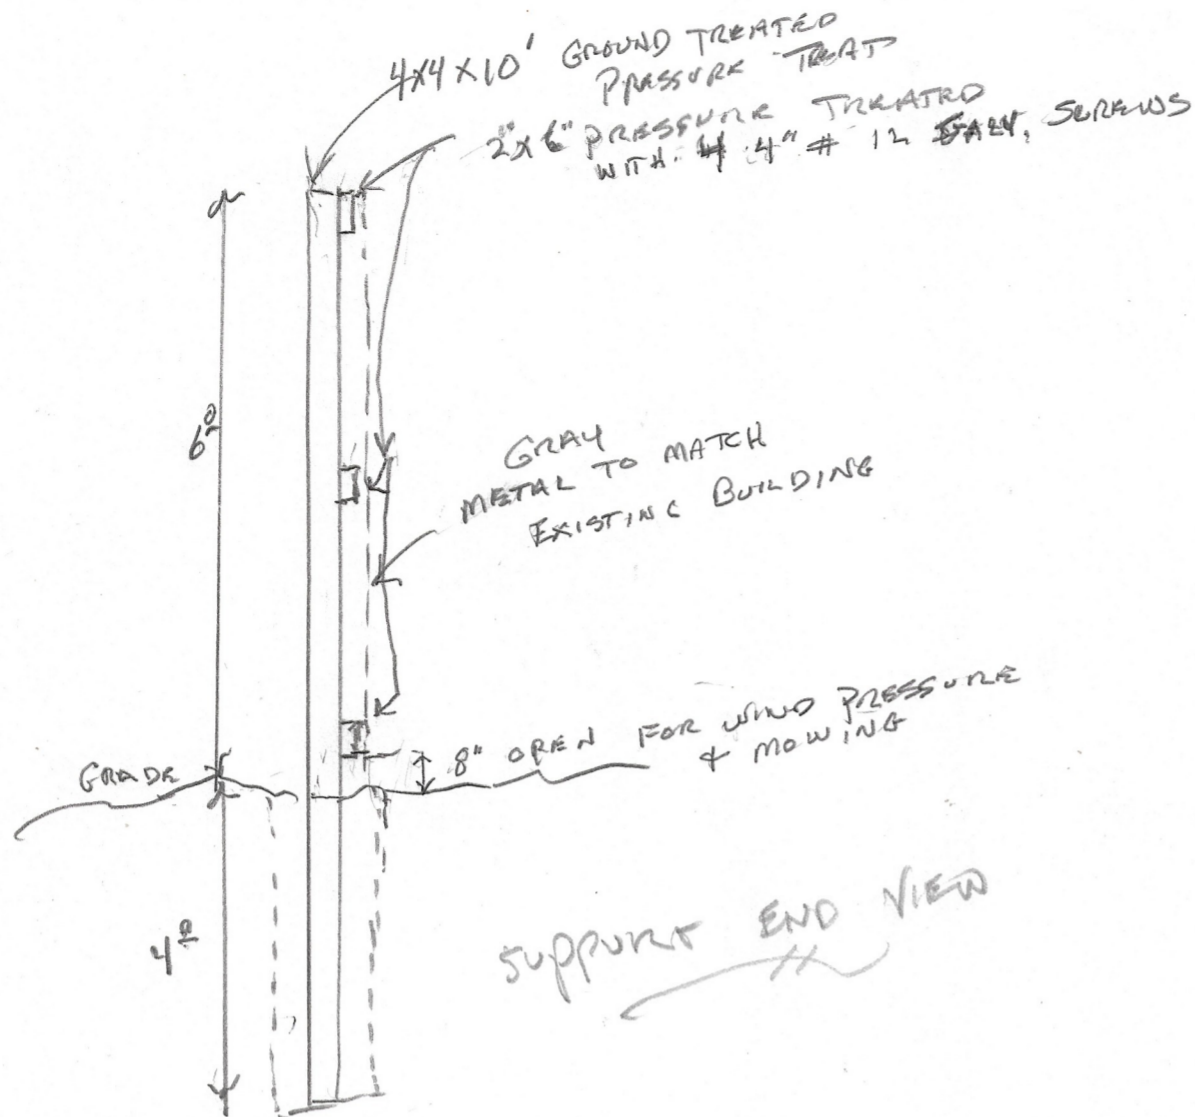 4x4x10' GROUND TREATED
PRESSURE TREAT
2"x6" PRESSURE TREATED
WITH 4" # 12 GALV. SCREWS
6⁰
GRAY
METAL TO MATCH
EXISTING BUILDING
8" OPEN FOR WIND PRESSURE
& MOWING
GRADE
4⁰
SUPPORT END VIEW